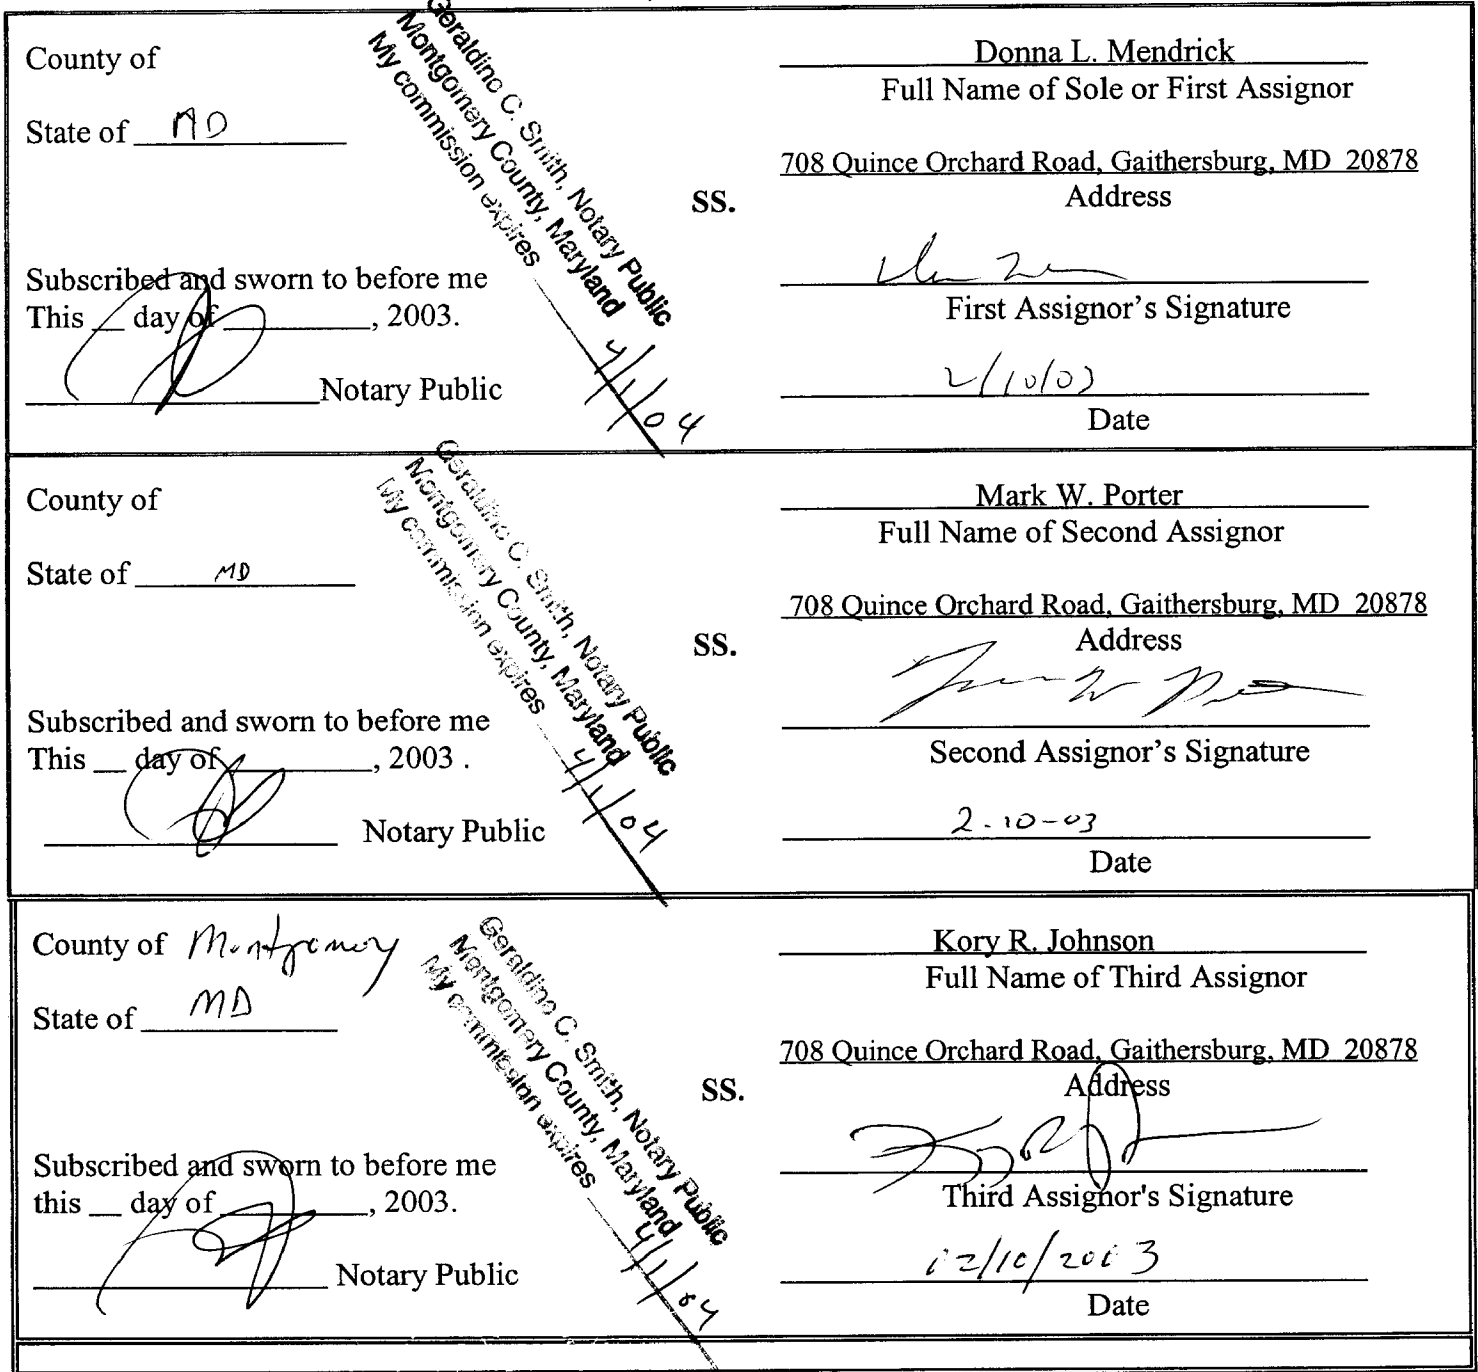 County of
State of MD
Subscribed and sworn to before me
This __ day of ________, 2003.
Notary Public
Geraldine C. Smith, Notary Public
Montgomery County, Maryland
My commission expires 4/1/04
SS.
Donna L. Mendrick
Full Name of Sole or First Assignor
708 Quince Orchard Road, Gaithersburg, MD 20878
Address
First Assignor's Signature
2/10/03
Date
County of
State of MD
Subscribed and sworn to before me
This __ day of ________, 2003 .
Notary Public
Geraldine C. Smith, Notary Public
Montgomery County, Maryland
My commission expires 4/1/04
SS.
Mark W. Porter
Full Name of Second Assignor
708 Quince Orchard Road, Gaithersburg, MD 20878
Address
Second Assignor's Signature
2-10-03
Date
County of Montgomery
State of MD
Subscribed and sworn to before me
this __ day of ________, 2003.
Notary Public
Geraldine C. Smith, Notary Public
Montgomery County, Maryland
My commission expires 4/1/04
SS.
Kory R. Johnson
Full Name of Third Assignor
708 Quince Orchard Road, Gaithersburg, MD 20878
Address
Third Assignor's Signature
02/10/2003
Date